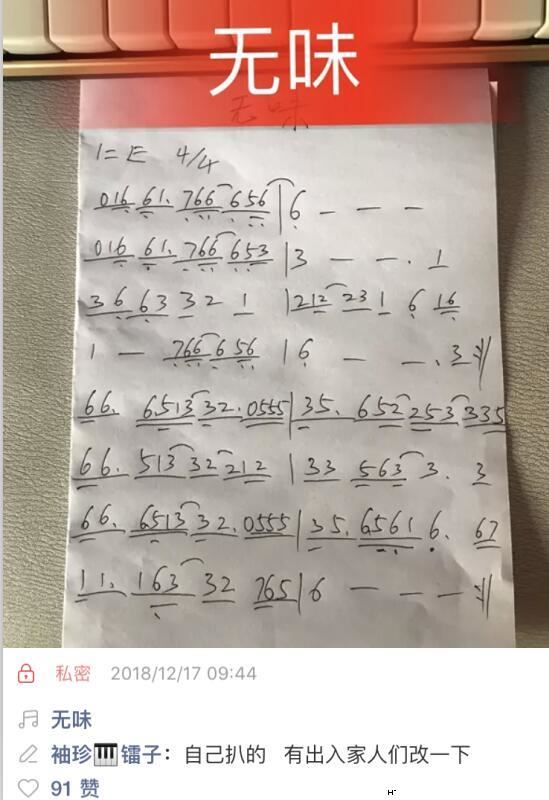 无味
无味
1=E 4/4
016 61. 766 656 | 6 — — —
016 61. 766 653 | 3 — — . 1
36 63 32 1 | 212 231 6 16
1 — 766 656 | 6 — — . 3 :||
66. 6513 32. 0555 | 35. 652 253 335
66. 513 32 212 | 33 563 3. 3
66. 6513 32. 0555 | 35. 6561 6. 67
11. 163 32 765 | 6 — — — :||
私密 2018/12/17 09:44
无味
袖珍🎹镭子：自己扒的 有出入家人们改一下
91 赞